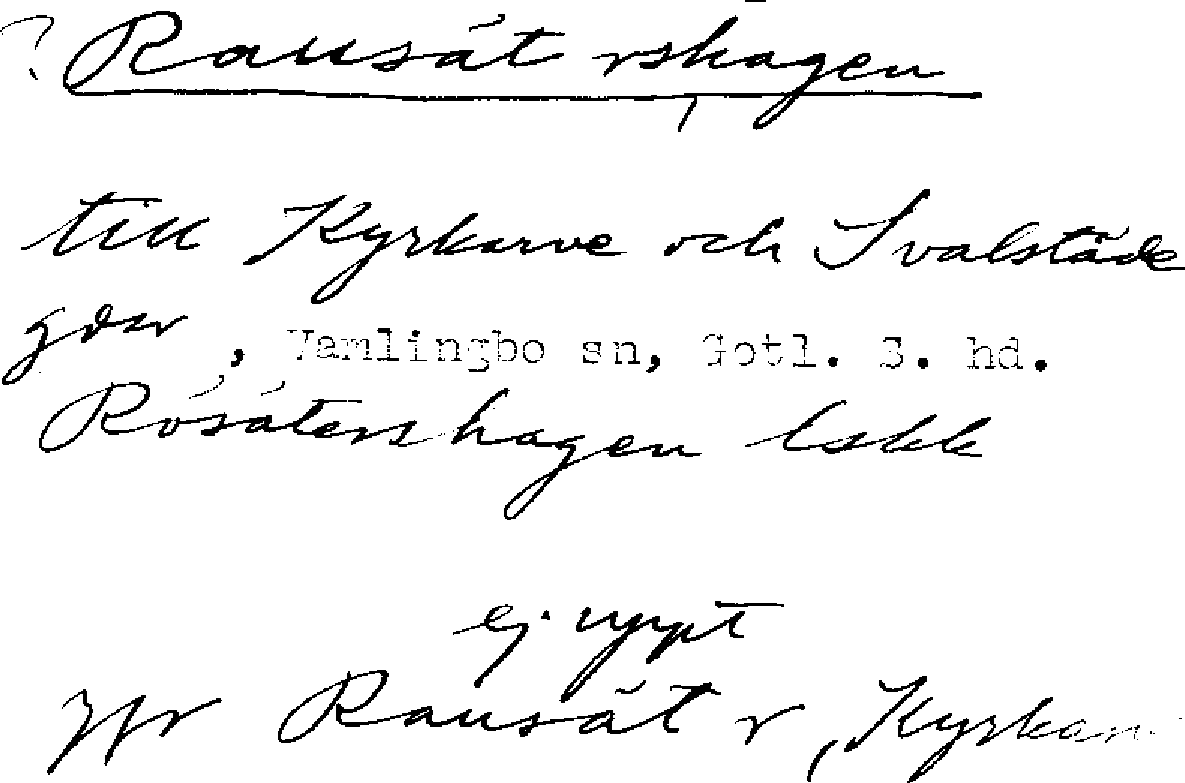 ? Rausát rshagen
till Kyrkarve och Svalstäde
gdar, Vamlingbo sn, Gotl. S. hd.
Rósátershagen lskk
ej uppt
jfr Rausát r, Kyrkarv